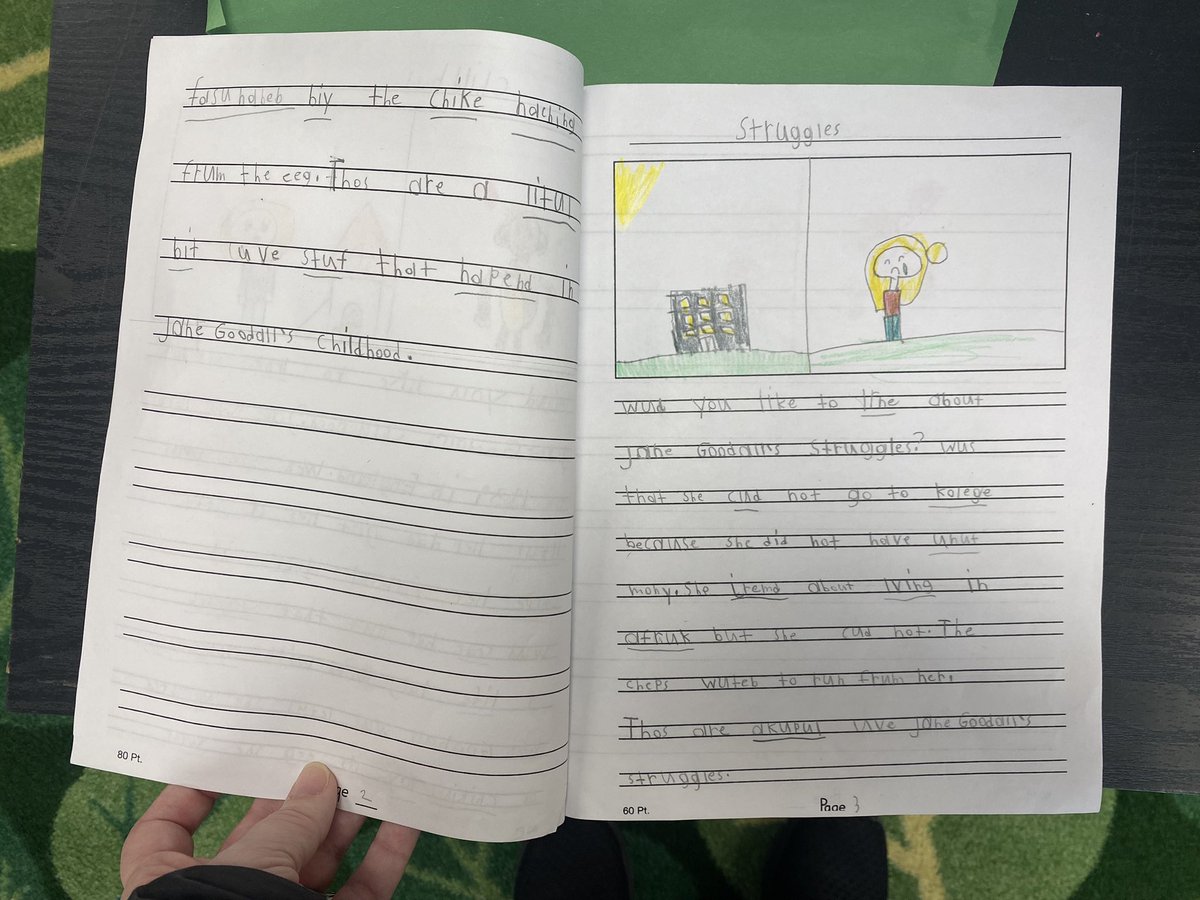 fasunateb hiy the chike haching
frum the eeg. Thos are a litul
bit uve stuf that hapend in
Jane Goodall's Childhood.
80 Pt.
ge 2
Struggles
Wud you like to lrne about
Jane Goodall's Struggles? Wus
that she cud not go to kolege
because she did not have unuf
mony. She jremd about lving in
afruk but she cud not. The
cheps wuteb to run frum her.
Thos are akupul uve Jane Goodall's
struggles.
60 Pt.
Page 3